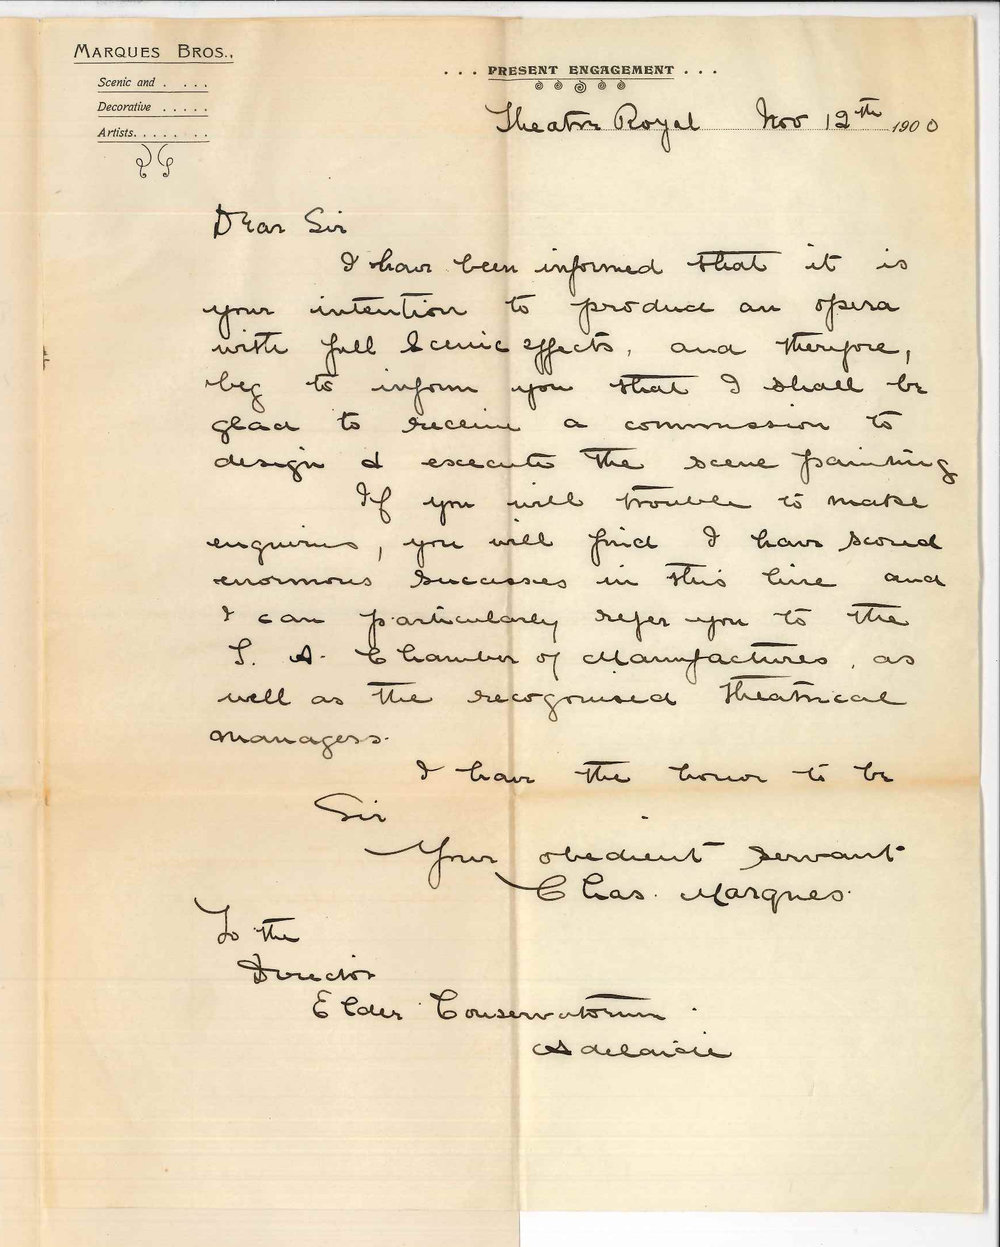 MARQUES BROS.,
Scenic and . . . . .
Decorative . . . . .
Artists. . . . . . . .
. . . PRESENT ENGAGEMENT . . .
Theatre Royal Nov 12th 1900
Dear Sir
I have been informed that it is
your intention to produce an opera
with full Scenic effects, and therefore,
beg to inform you that I shall be
glad to receive a commission to
design & execute the scene painting
If you will trouble to make
enquiries, you will find I have scored
enormous successes in this line and
I can particularly refer you to the
S. A. Chamber of Manufactures, as
well as the recognised theatrical
managers.
I have the honor to be
Sir
Your obedient servant
Chas. Marques.
To the
Director
Elder Conservatorium
Adelaide